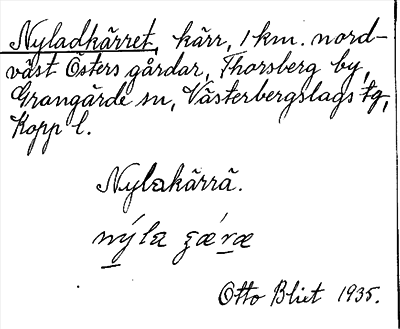 Nyladkärret, kärr, 1 km. nord-
väst Östers gårdar, Thorsberg by,
Grangärde sn, Västerbergslags tg,
Kopp l.
Nylakärrä.
nýla
Otto Blixt 1935.